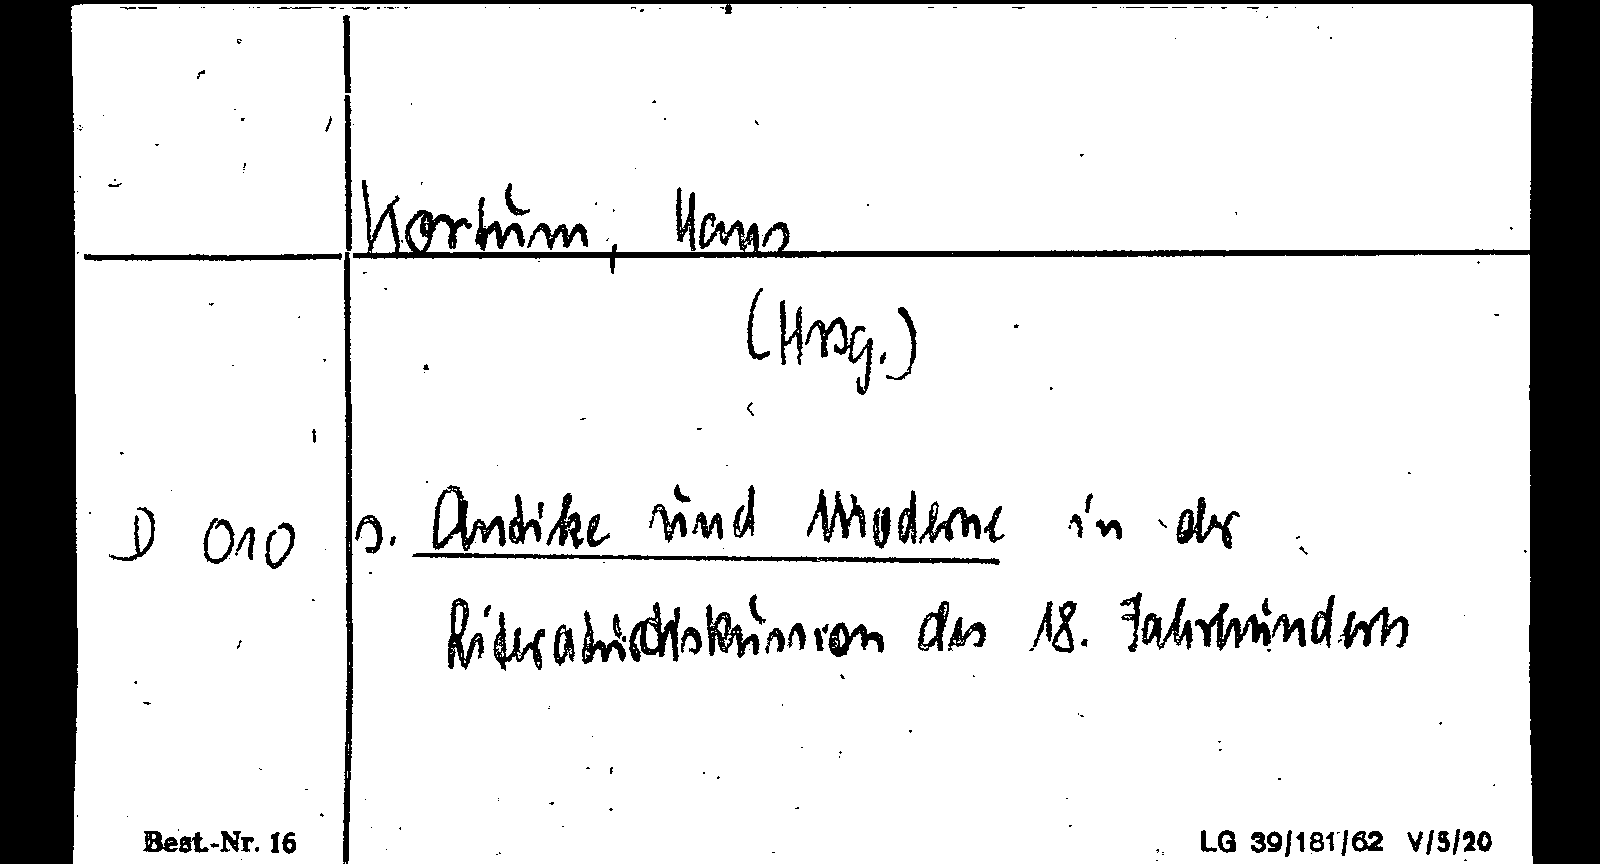 Kortum, Hans
(Hrsg.)
D 010 s. Antike und Moderne in der
Literaturdiskussion des 18. Jahrhunderts
Best.-Nr. 16 LG 39/181/62 V/5/20